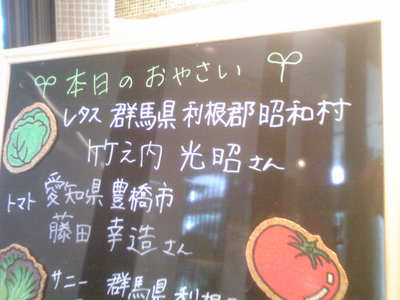 本日のおやさい
レタス 群馬県利根郡昭和村
竹之内 光昭さん
トマト 愛知県豊橋市
藤田 幸造さん
サニー 群馬県利根